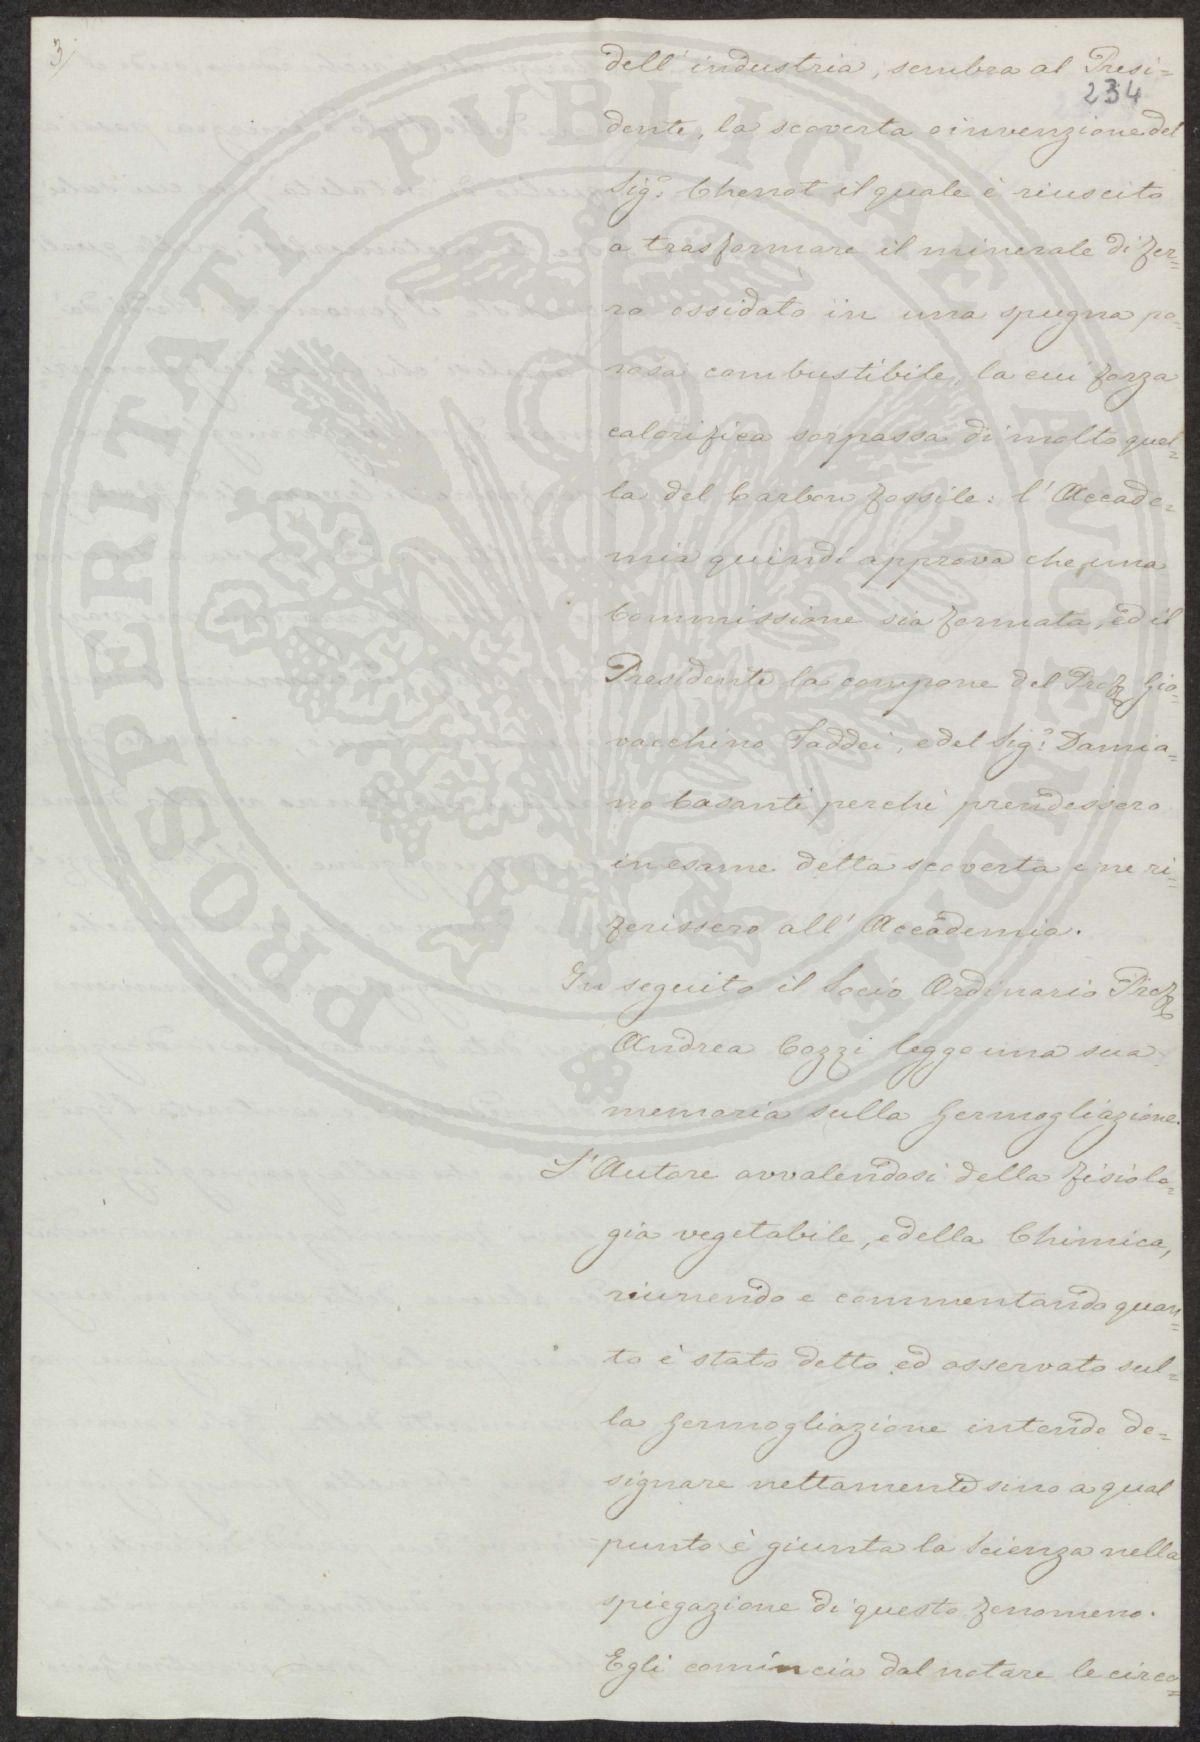 3/
dell' industria, sembra al Presi=
234
dente, la scoverta o invenzione del
Sig.r Chenot il quale è riuscito
a trasformare il minerale di fer=
ro ossidato in una spugna po=
rosa combustibile, la cui forza
calorifica sorpassa di molto quel=
la del Carbon fossile: l' Accade=
mia quindi approva che una
Commissione sia formata, ed il
Presidente la compone del Prof. Gio=
vacchino Taddei, e del Sig.r Damia=
no Casanti perchè prendessero
in esame detta scoverta e ne ri=
ferissero all' Accademia.
In seguito il Socio Ordinario Prof.
Andrea Cozzi legge una sua
memoria sulla germogliazione.
L' Autore avvalendosi della fisiolo=
gia vegetabile, e della Chimica,
riunendo e commentando quan=
to è stato detto ed osservato sul=
la germogliazione intende de=
signare nettamente sino a qual
punto è giunta la Scienza nella
spiegazione di questo fenomeno.
Egli comincia dal notare le circo=
PROSPERITATI PUBLICAE AUGENDAE